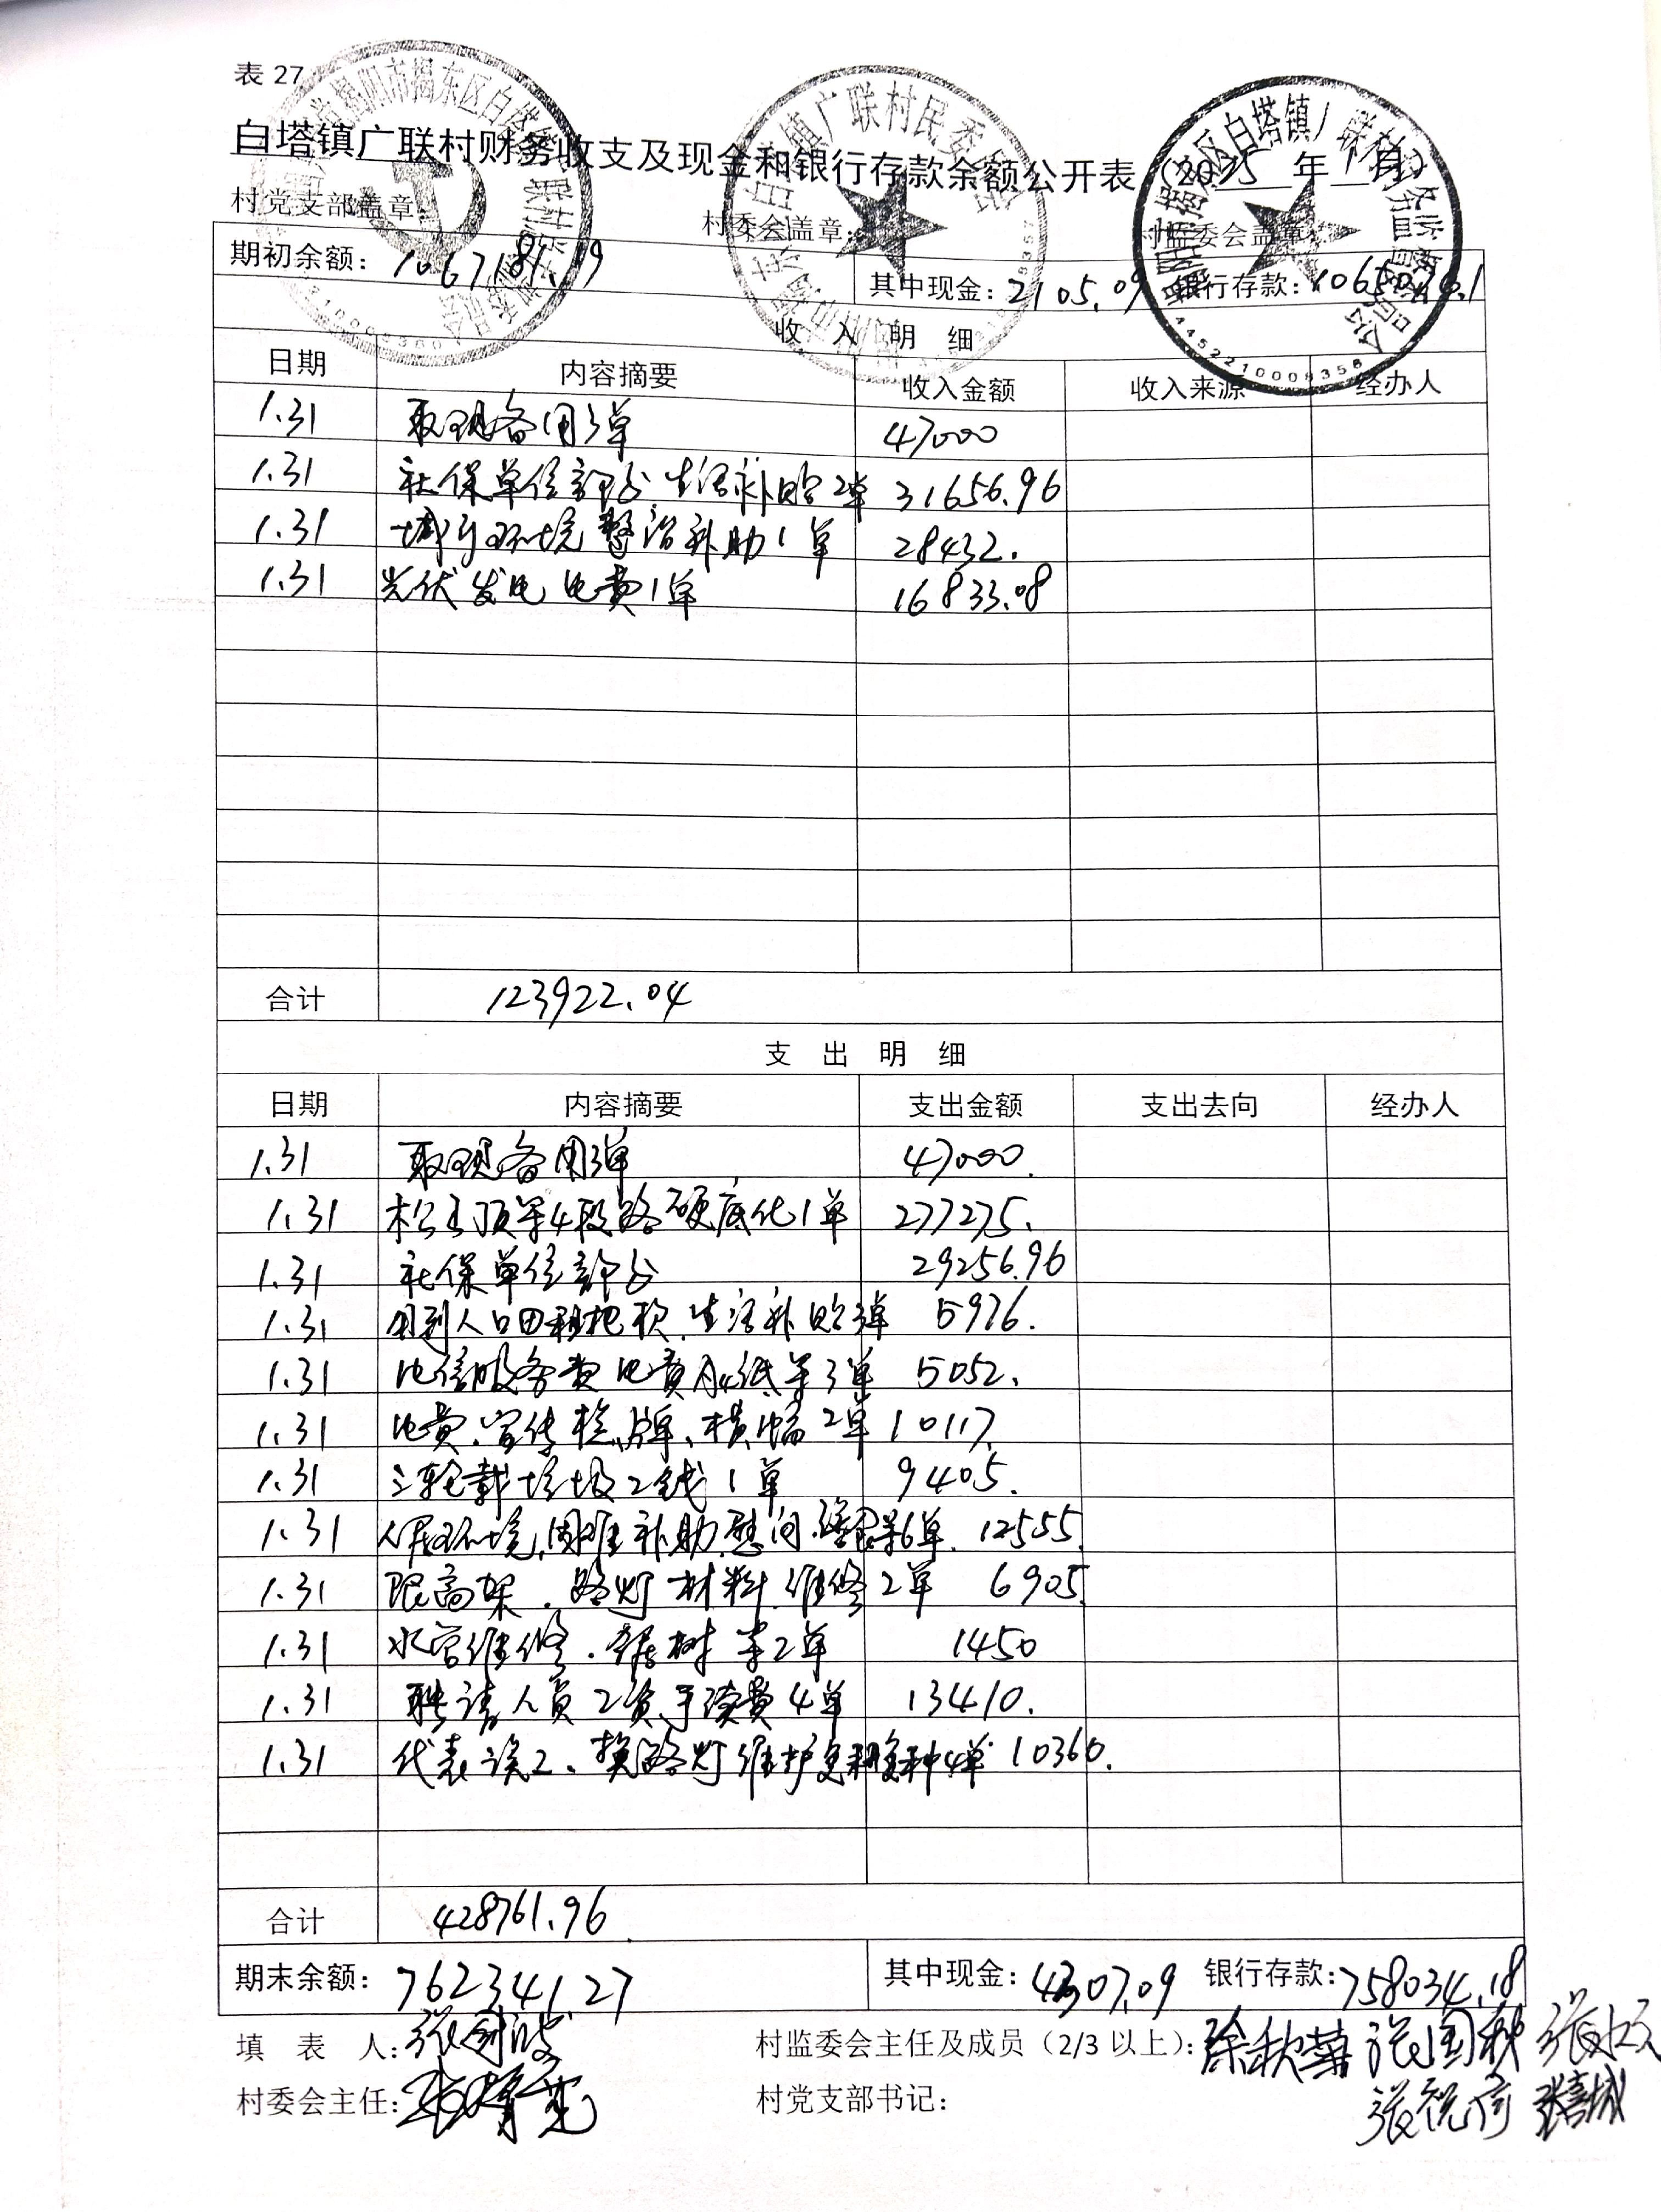 表 27
白塔镇广联村财务收支及现金和银行存款余额公开表（2025 年 1 月）
村党支部盖章： 村委会盖章： 村监委会盖章：
期初余额：1067181.19 其中现金：2105.09 银行存款：1065076.1
收 入 明 细
日期 内容摘要 收入金额 收入来源 经办人
1.31 取现备用3单 47000
1.31 社保单位部分、生活补贴2单 31656.96
1.31 城乡环境整治补助1单 28432.
1.31 光伏发电电费1单 16833.08
合计 123922.04
支 出 明 细
日期 内容摘要 支出金额 支出去向 经办人
1.31 取现备用3单 47000.
1.31 硬底化1单 277275.
1.31 社保单位部分 29256.96
1.31 生活补贴3单 5976.
1.31 电信服务费电费A4纸等3单 5052.
1.31 电费、宣传栏、牌、横幅2单 10117.
1.31 三轮载垃圾工钱1单 9405.
1.31 人居环境、困难补助、慰问 6单 12555.
1.31 限高架、路灯材料、维修2单 6905.
1.31 水管维修、锯树等2单 1450
1.31 聘请人员工资、手续费4单 13410.
1.31 代表误工、换路灯维护 4单 10360.
合计 428761.96
期末余额：762341.27 其中现金：4307.09 银行存款：758034.18
填 表 人： 村监委会主任及成员（2/3 以上）：徐秋 张国秋
村委会主任： 村党支部书记：